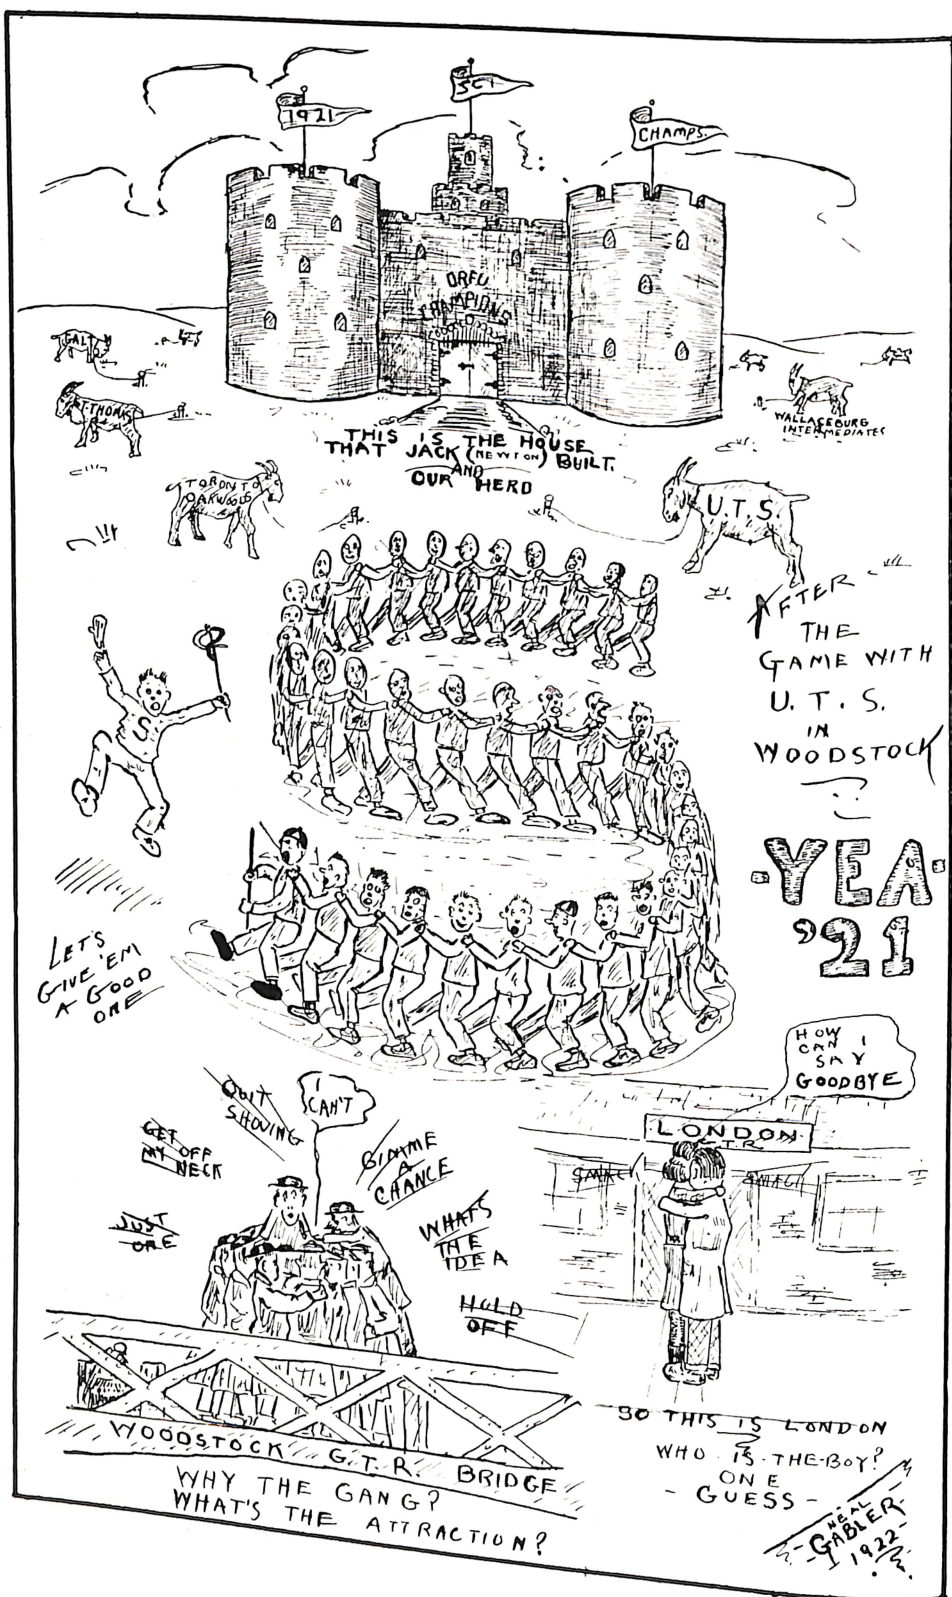 1921
SCI
CHAMPS.
ORFU
CHAMPIONS
GALT
ST. THOMAS
TORONTO
OAKWOODS
WALLACEBURG
INTERMEDIATES
U.T.S.
THIS IS THE HOUSE
THAT JACK (NEWTON) BUILT.
AND
OUR HERD
S
AFTER
THE
GAME WITH
U.T.S.
IN
WOODSTOCK
YEA
'21
LET'S
GIVE 'EM
A GOOD
ONE
HOW
CAN I
SAY
GOODBYE
QUIT
SHOVING
I
CAN'T
GET OFF
MY NECK
GIMME
A
CHANCE
JUST
ONE
WHATS
THE
IDEA
HOLD
OFF
LONDON
G.T.R.
SMACK
SMACK
WOODSTOCK G.T.R. BRIDGE
WHY THE GANG?
WHAT'S THE ATTRACTION?
SO THIS IS LONDON
WHO IS THE BOY?
ONE
- GUESS -
NEAL
GABLER
1922